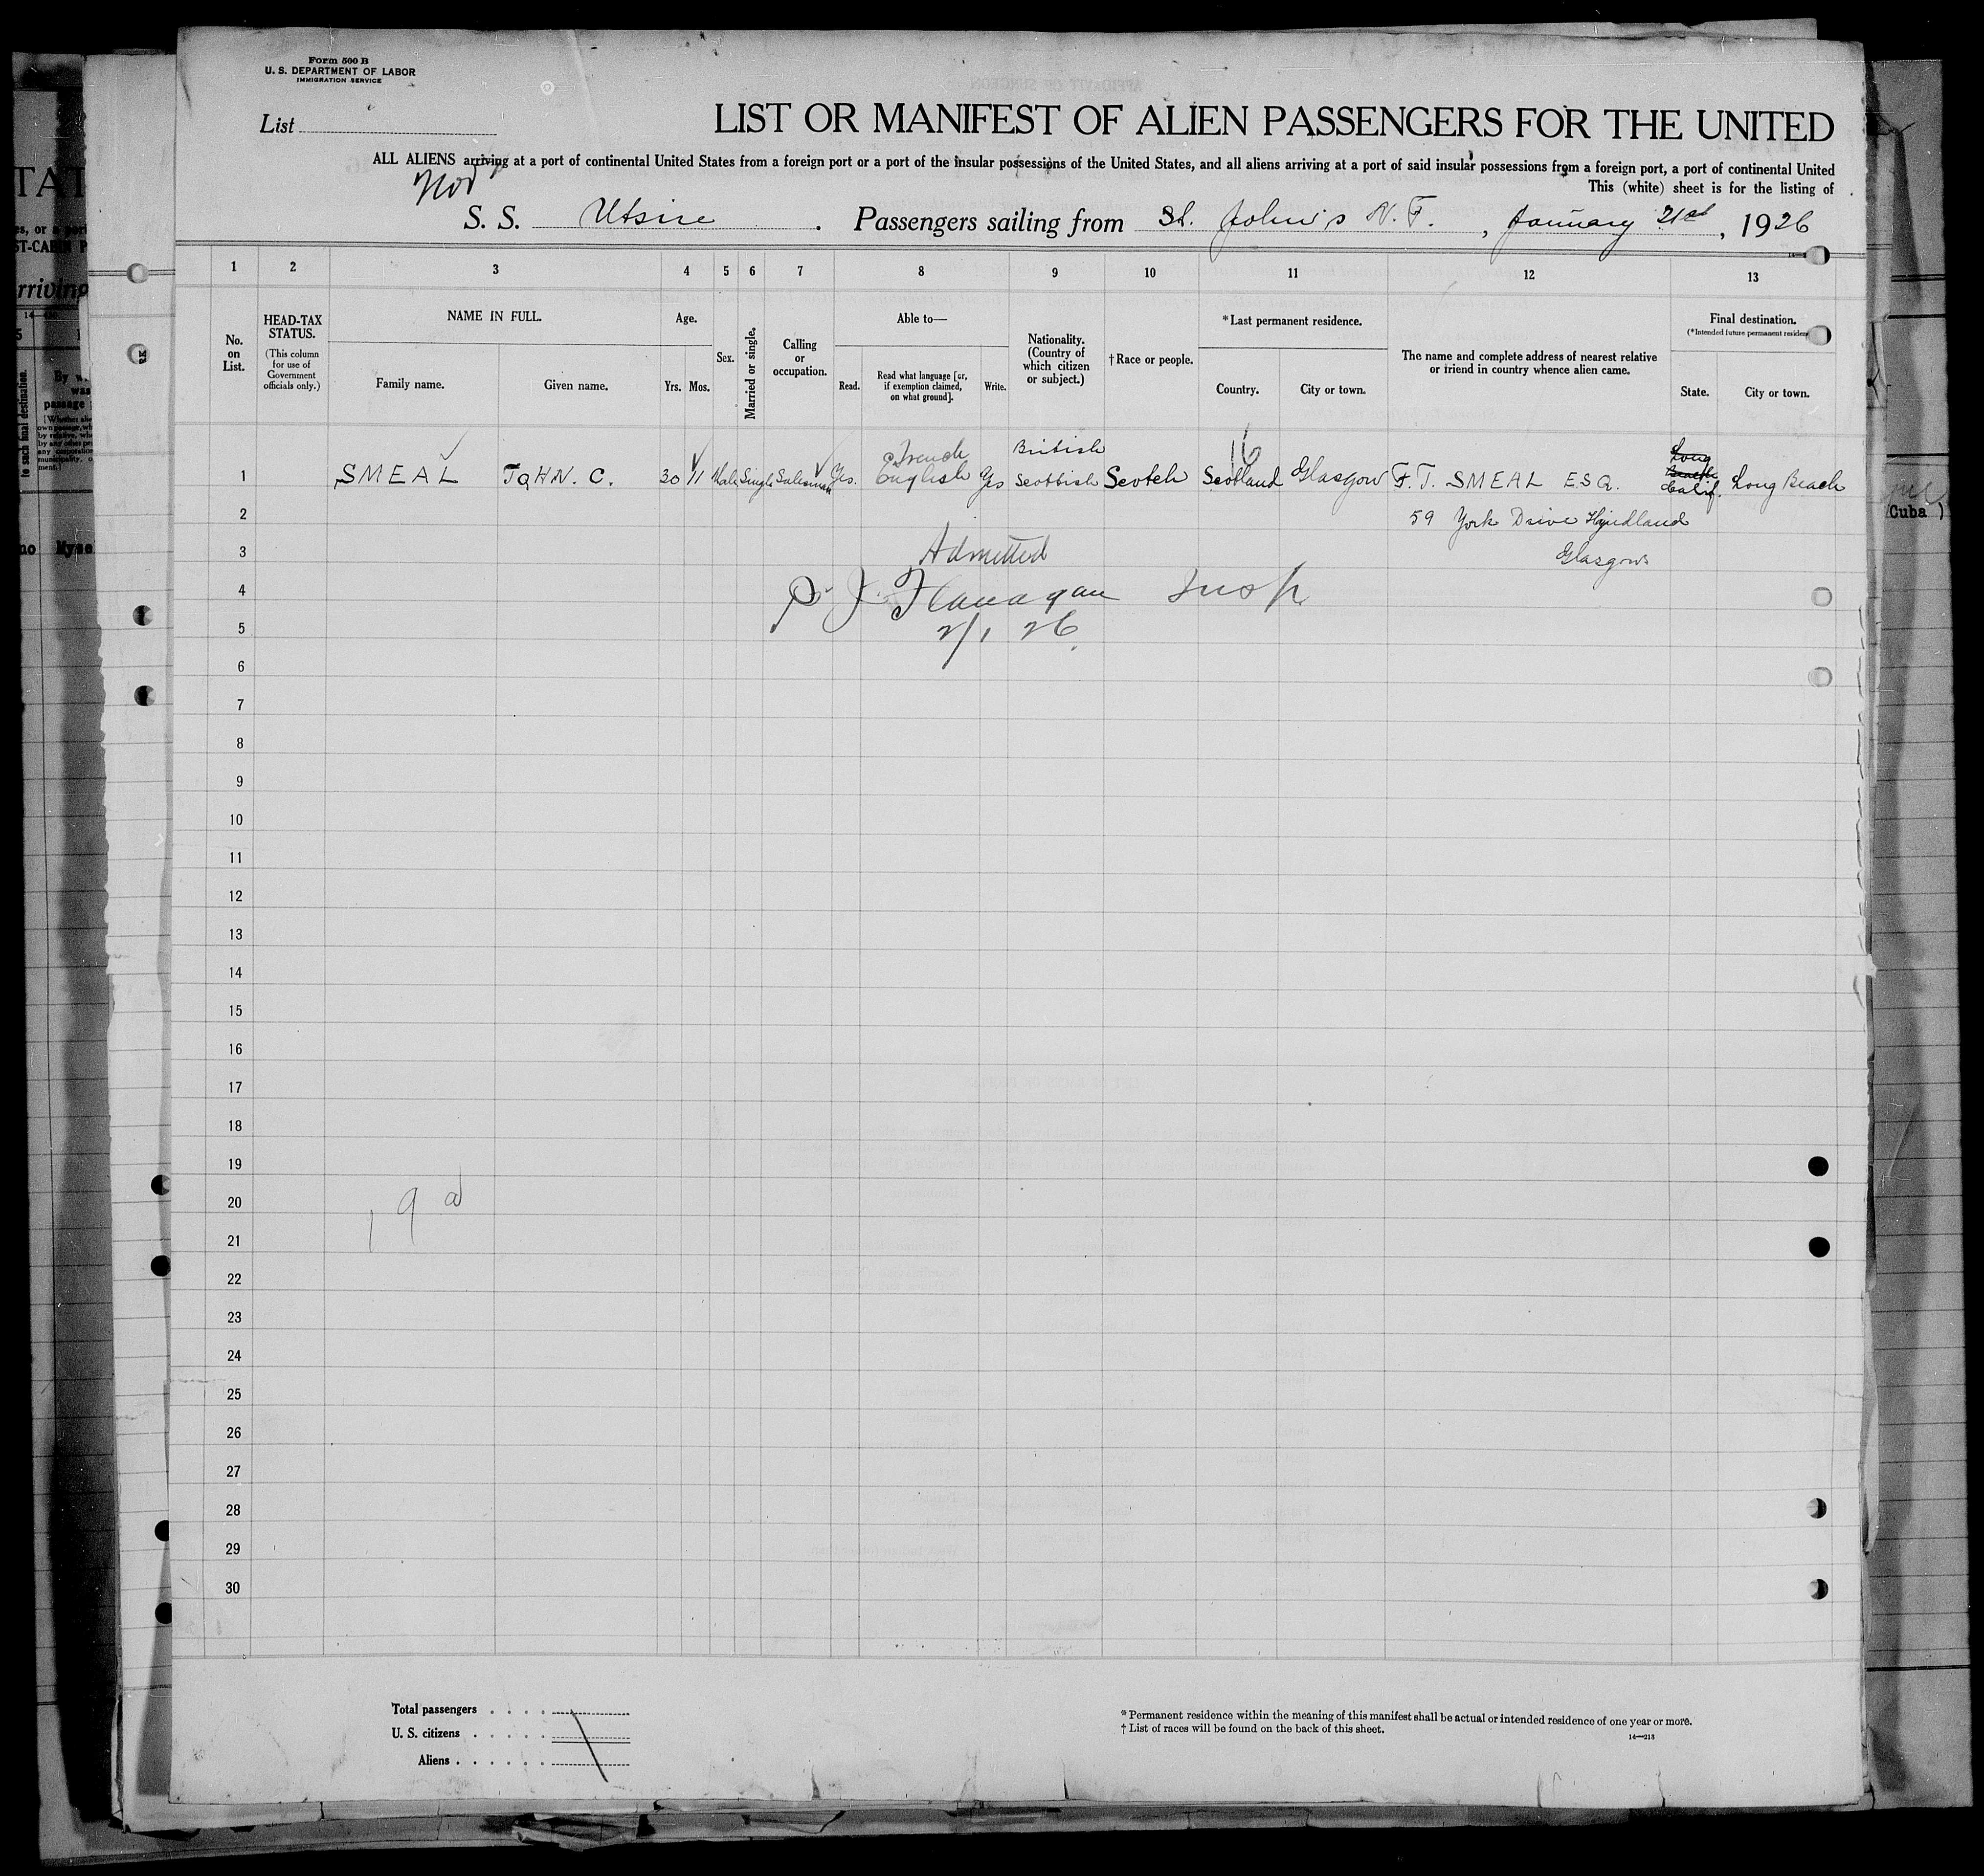 Form 500 B
U. S. DEPARTMENT OF LABOR
IMMIGRATION SERVICE
List
LIST OR MANIFEST OF ALIEN PASSENGERS FOR THE UNITED
ALL ALIENS arriving at a port of continental United States from a foreign port or a port of the insular possessions of the United States, and all aliens arriving at a port of said insular possessions from a foreign port, a port of continental United
This (white) sheet is for the listing of
Nor
S. S. Utsire . Passengers sailing from St. John's N. F. , January 21st , 1926
1 2 3 4 5 6 7 8 9 10 11 12 13
No. on List.
HEAD-TAX STATUS.
(This column for use of Government officials only.)
NAME IN FULL.
Family name. Given name.
Age.
Yrs. Mos.
Sex.
Married or single.
Calling or occupation.
Able to—
Read. Read what language [or, if exemption claimed, on what ground]. Write.
Nationality. (Country of which citizen or subject.)
†Race or people.
*Last permanent residence.
Country. City or town.
The name and complete address of nearest relative or friend in country whence alien came.
Final destination.
(*Intended future permanent residence
State. City or town.
French British 16 Long Beach
1 SMEAL JOHN. C. 30 11 Male Single Salesman Yes. English Yes Scottish Scotch Scotland Glasgow F. T. SMEAL ESQ. Calif. Long Beach
2 59 York Drive Hyndland
3 Admitted Glasgow
4 P. J. Flanagan Insp
5 2/1 26
6
7
8
9
10
11
12
13
14
15
16
17
18
19
20
21
22
23
24
25
26
27
28
29
30
Total passengers
U. S. citizens
Aliens
* Permanent residence within the meaning of this manifest shall be actual or intended residence of one year or more.
† List of races will be found on the back of this sheet.
14—213